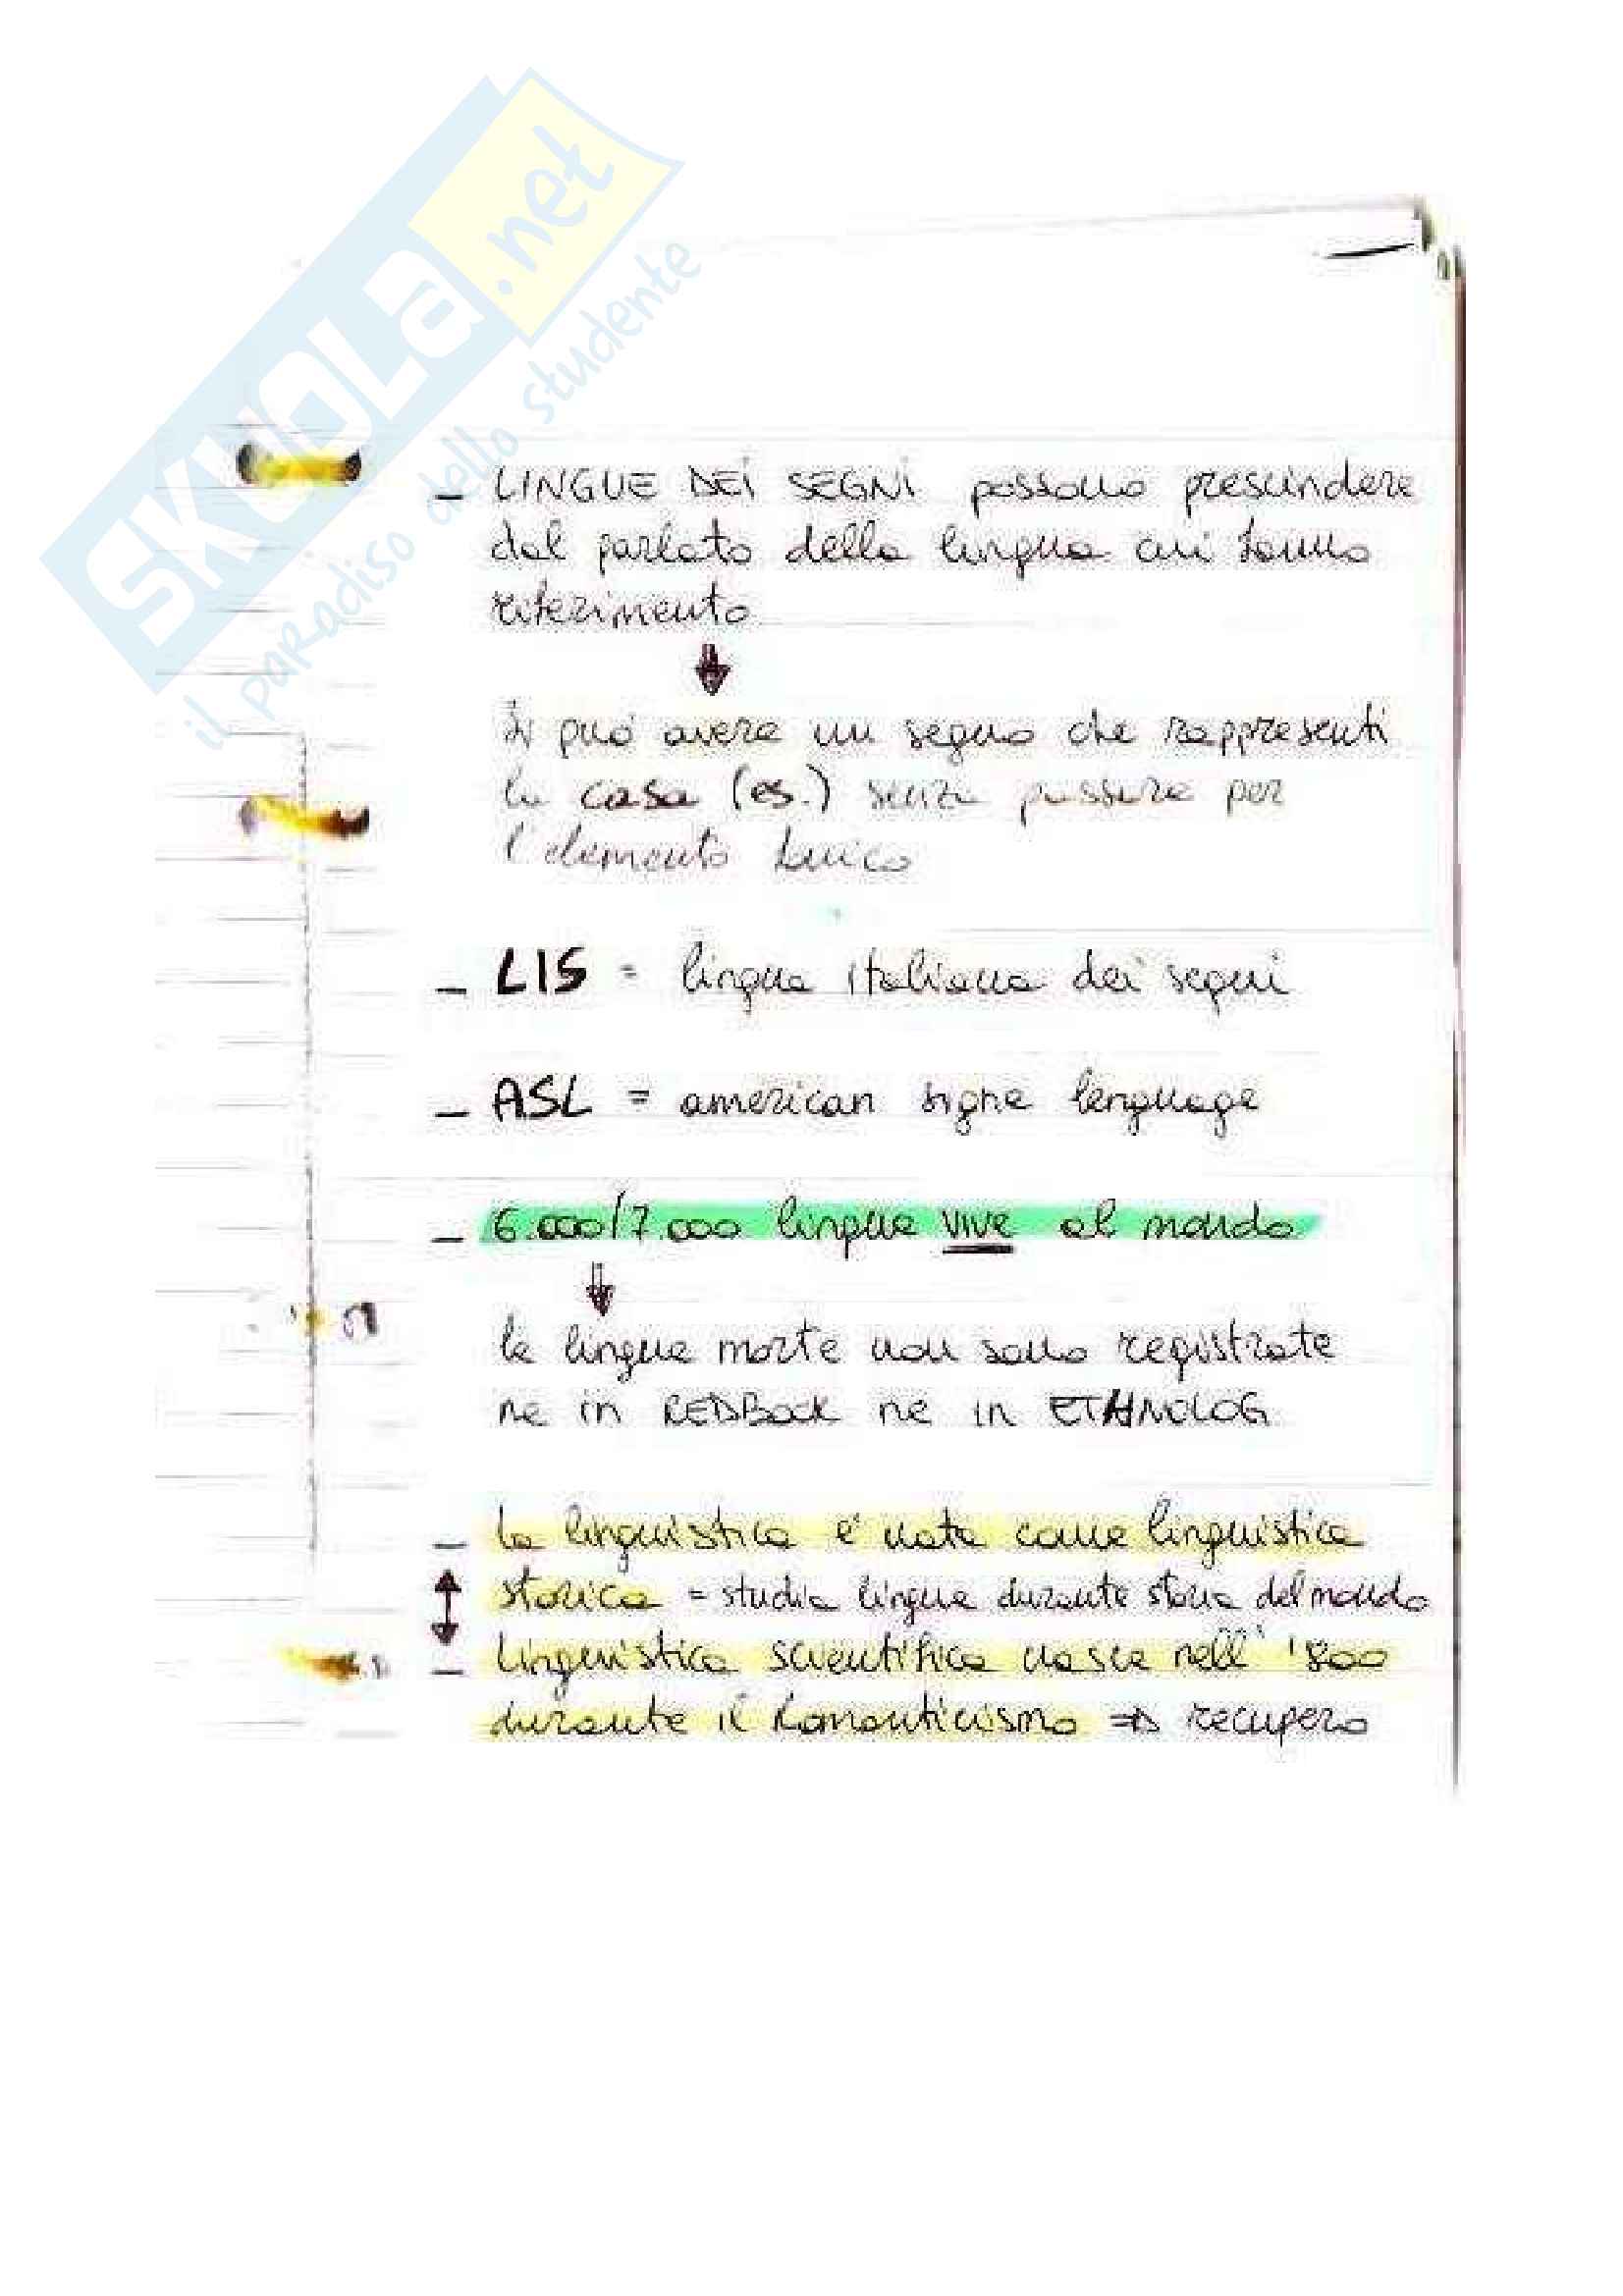 SKUOLA.net
il paradiso dello studente
_ LINGUE DEI SEGNI possono prescindere
dal parlato della lingua cui fanno
riferimento
↓
si può avere un segno che rappresenti
la casa (es.) senza passare per
l'elemento fonico
_ LIS = lingua italiana dei segni
_ ASL = american signe lenguage
_ 6.000/7.000 lingue VIVE al mondo
⇓
le lingue morte non sono registrate
ne in REDBOOK ne in ETHNOLOG
_ la linguistica è nata come linguistica
storica = studia lingue durante storia del mondo
_ linguistica scientifica nasce nell' '800
durante il Romanticismo => recupero